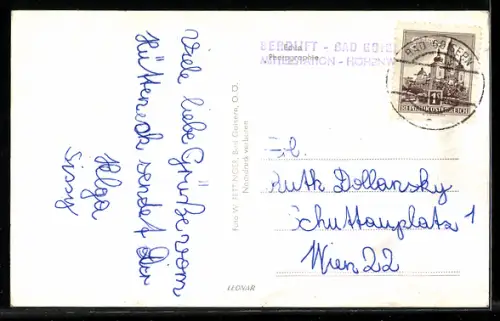 Viele liebe Grüße vom
Hütteneck sendet Dir
Helga
Sissy
Echte
Photographie
Foto W. FETTINGER, Bad Goisern, O. Ö.
Nachdruck verboten
LEOVAR
BERGLIFT - BAD GOIS
MITTELSTATION - HOHENW
BAD GOISERN
REPUBLIK ÖSTERREICH
Frl.
Ruth Dollansky
Schüttauplatz 1
Wien 22